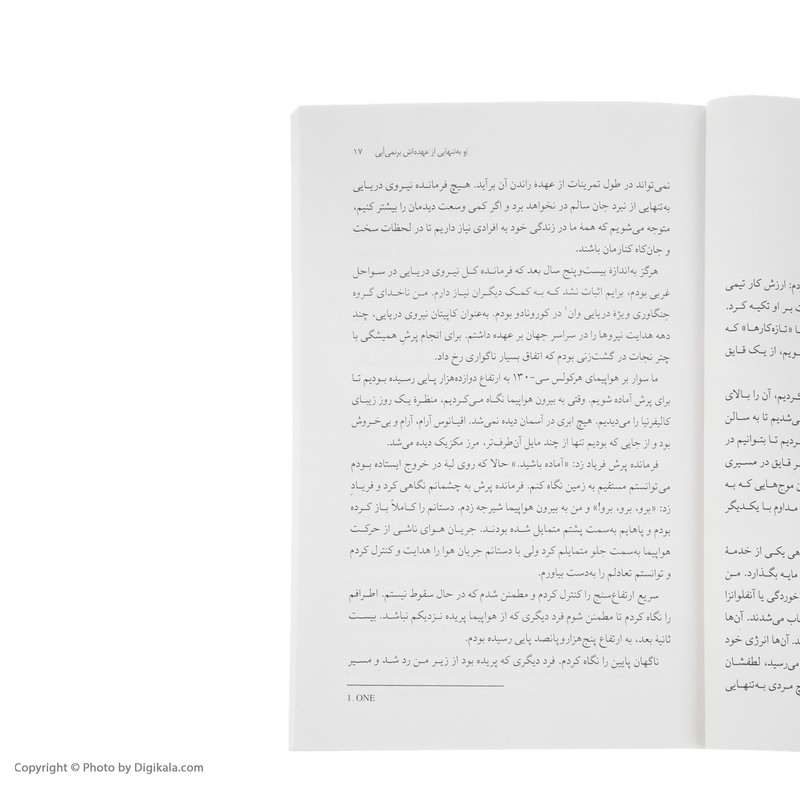 و به‌تنهایی از عهده‌اش برنمی‌آیی ۱۷
نمی‌تواند در طول تمرینات از عهدهٔ راندن آن برآید. هیچ فرمانده نیروی دریایی
به‌تنهایی از نبرد جان سالم در نخواهد برد و اگر کمی وسعت دیدمان را بیشتر کنیم،
متوجه می‌شویم که همهٔ ما در زندگی خود به افرادی نیاز داریم تا در لحظات سخت
و جان‌کاه کنارمان باشند.
هرگز به‌اندازهٔ بیست‌وپنج سال بعد که فرمانده کل نیروی دریایی در سواحل
غربی بودم، برایم اثبات نشد که به کمک دیگران نیاز دارم. من ناخدای گروه
جنگاوری ویژهٔ دریایی وان۱ در کورونادو بودم. به‌عنوان کاپیتان نیروی دریایی، چند
دهه هدایت نیروها را در سراسر جهان بر عهده داشتم. برای انجام پرشِ همیشگی با
چتر نجات در گشت‌زنی بودم که اتفاق بسیار ناگواری رخ داد.
ما سوار بر هواپیمای هرکولس سی-۱۳۰ به ارتفاع دوازده‌هزار پایی رسیده بودیم تا
برای پرش آماده شویم. وقتی به بیرون هواپیما نگاه می‌کردیم، منظرهٔ یک روز زیبای
کالیفرنیا را می‌دیدیم. هیچ ابری در آسمان دیده نمی‌شد. اقیانوس آرام، آرام و بی‌خروش
بود و از جایی که بودیم تنها از چند مایل آن‌طرف‌تر، مرز مکزیک دیده می‌شد.
فرمانده پرش فریاد زد: «آماده باشید.» حالا که روی لبهٔ در خروج ایستاده بودم
می‌توانستم مستقیم به زمین نگاه کنم. فرمانده پرش به چشمانم نگاهی کرد و فریادِ
زد: «برو، برو، برو!» و من به بیرون هواپیما شیرجه زدم. دستانم را کاملاً باز کرده
بودم و پاهایم به‌سمت پشتم متمایل شده بودند. جریان هوای ناشی از حرکت
هواپیما به‌سمت جلو متمایلم کرد ولی با دستانم جریان هوا را هدایت و کنترل کردم
و توانستم تعادلم را به‌دست بیاورم.
سریع ارتفاع‌سنج را کنترل کردم و مطمئن شدم که در حال سقوط نیستم. اطرافم
را نگاه کردم تا مطمئن شوم فرد دیگری که از هواپیما پریده نزدیکم نباشد. بیست
ثانیهٔ بعد، به ارتفاع پنج‌هزاروپانصد پایی رسیده بودم.
ناگهان پایین را نگاه کردم. فرد دیگری که پریده بود از زیر من رد شد و مسیر
1. ONE
دم: ارزش کار تیمی
بر او تکیه کرد.
«تازه‌کارها» که
ویم، از یک قایق
کردیم، آن را بالای
می‌شدیم تا به سالن
ردیم تا بتوانیم در
ر قایق در مسیری
موج‌هایی که به
مداوم با یکدیگر
هی یکی از خدمهٔ
مایه بگذارد. من
خوردگی یا آنفلوانزا
اب می‌شدند. آن‌ها
د. آن‌ها انرژی خود
می‌رسید، لطفشان
چ مردی به‌تنهایی
Copyright © Photo by Digikala.com